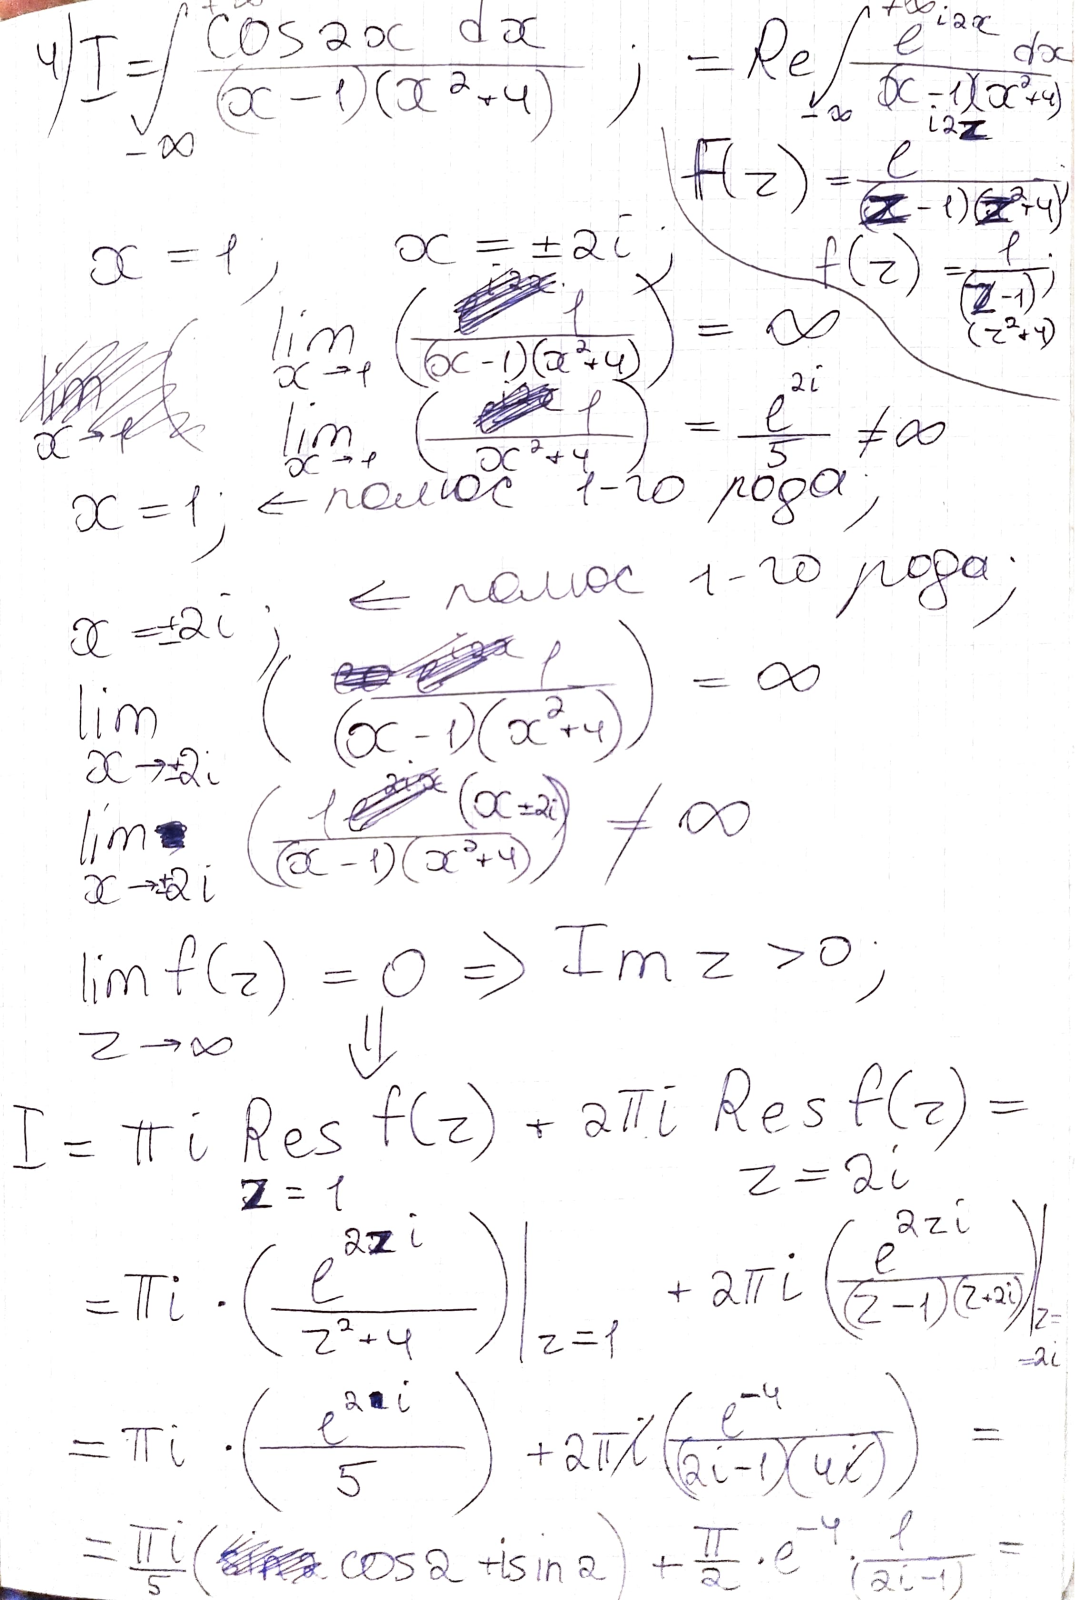 4) I = ∫_{-∞}^{+∞} cos2x dx / (x-1)(x²+4) ; = Re ∫_{-∞}^{+∞} e^{i2x} dx / (x-1)(x²+4)
F(z) = e^{i2z} / (z-1)(z²+4) ;
x = 1 ; x = ±2i ; f(z) = 1 / (z-1)(z²+4) ;
lim_{x→1} ( 1 / (x-1)(x²+4) ) = ∞
lim_{x→1} ( 1 / x²+4 ) = e^{2i} / 5 ≠ ∞
x = 1 ; ← полюс 1-го рода ;
x = ±2i ; ← полюс 1-го рода ;
lim_{x→±2i} ( 1 / (x-1)(x²+4) ) = ∞
lim_{x→±2i} ( 1 (x±2i) / (x-1)(x²+4) ) ≠ ∞
lim_{z→∞} f(z) = 0 => Im z > 0 ;
⇓
I = πi Res_{z=1} f(z) + 2πi Res_{z=2i} f(z) =
= πi · ( e^{2zi} / z²+4 ) |_{z=1} + 2πi ( e^{2zi} / (z-1)(z+2i) ) |_{z=2i}
= πi · ( e^{2i} / 5 ) + 2πi ( e^{-4} / (2i-1)(4i) ) =
= πi/5 ( cos2 + i sin2 ) + π/2 · e^{-4} · 1 / (2i-1) =